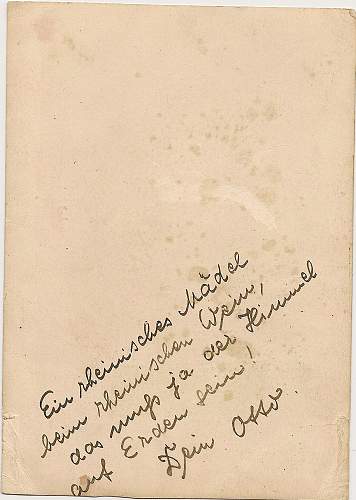 Ein rheinisches Mädel
beim rheinischen Wein,
das muß ja der Himmel
auf Erden sein!
Dein Otto.